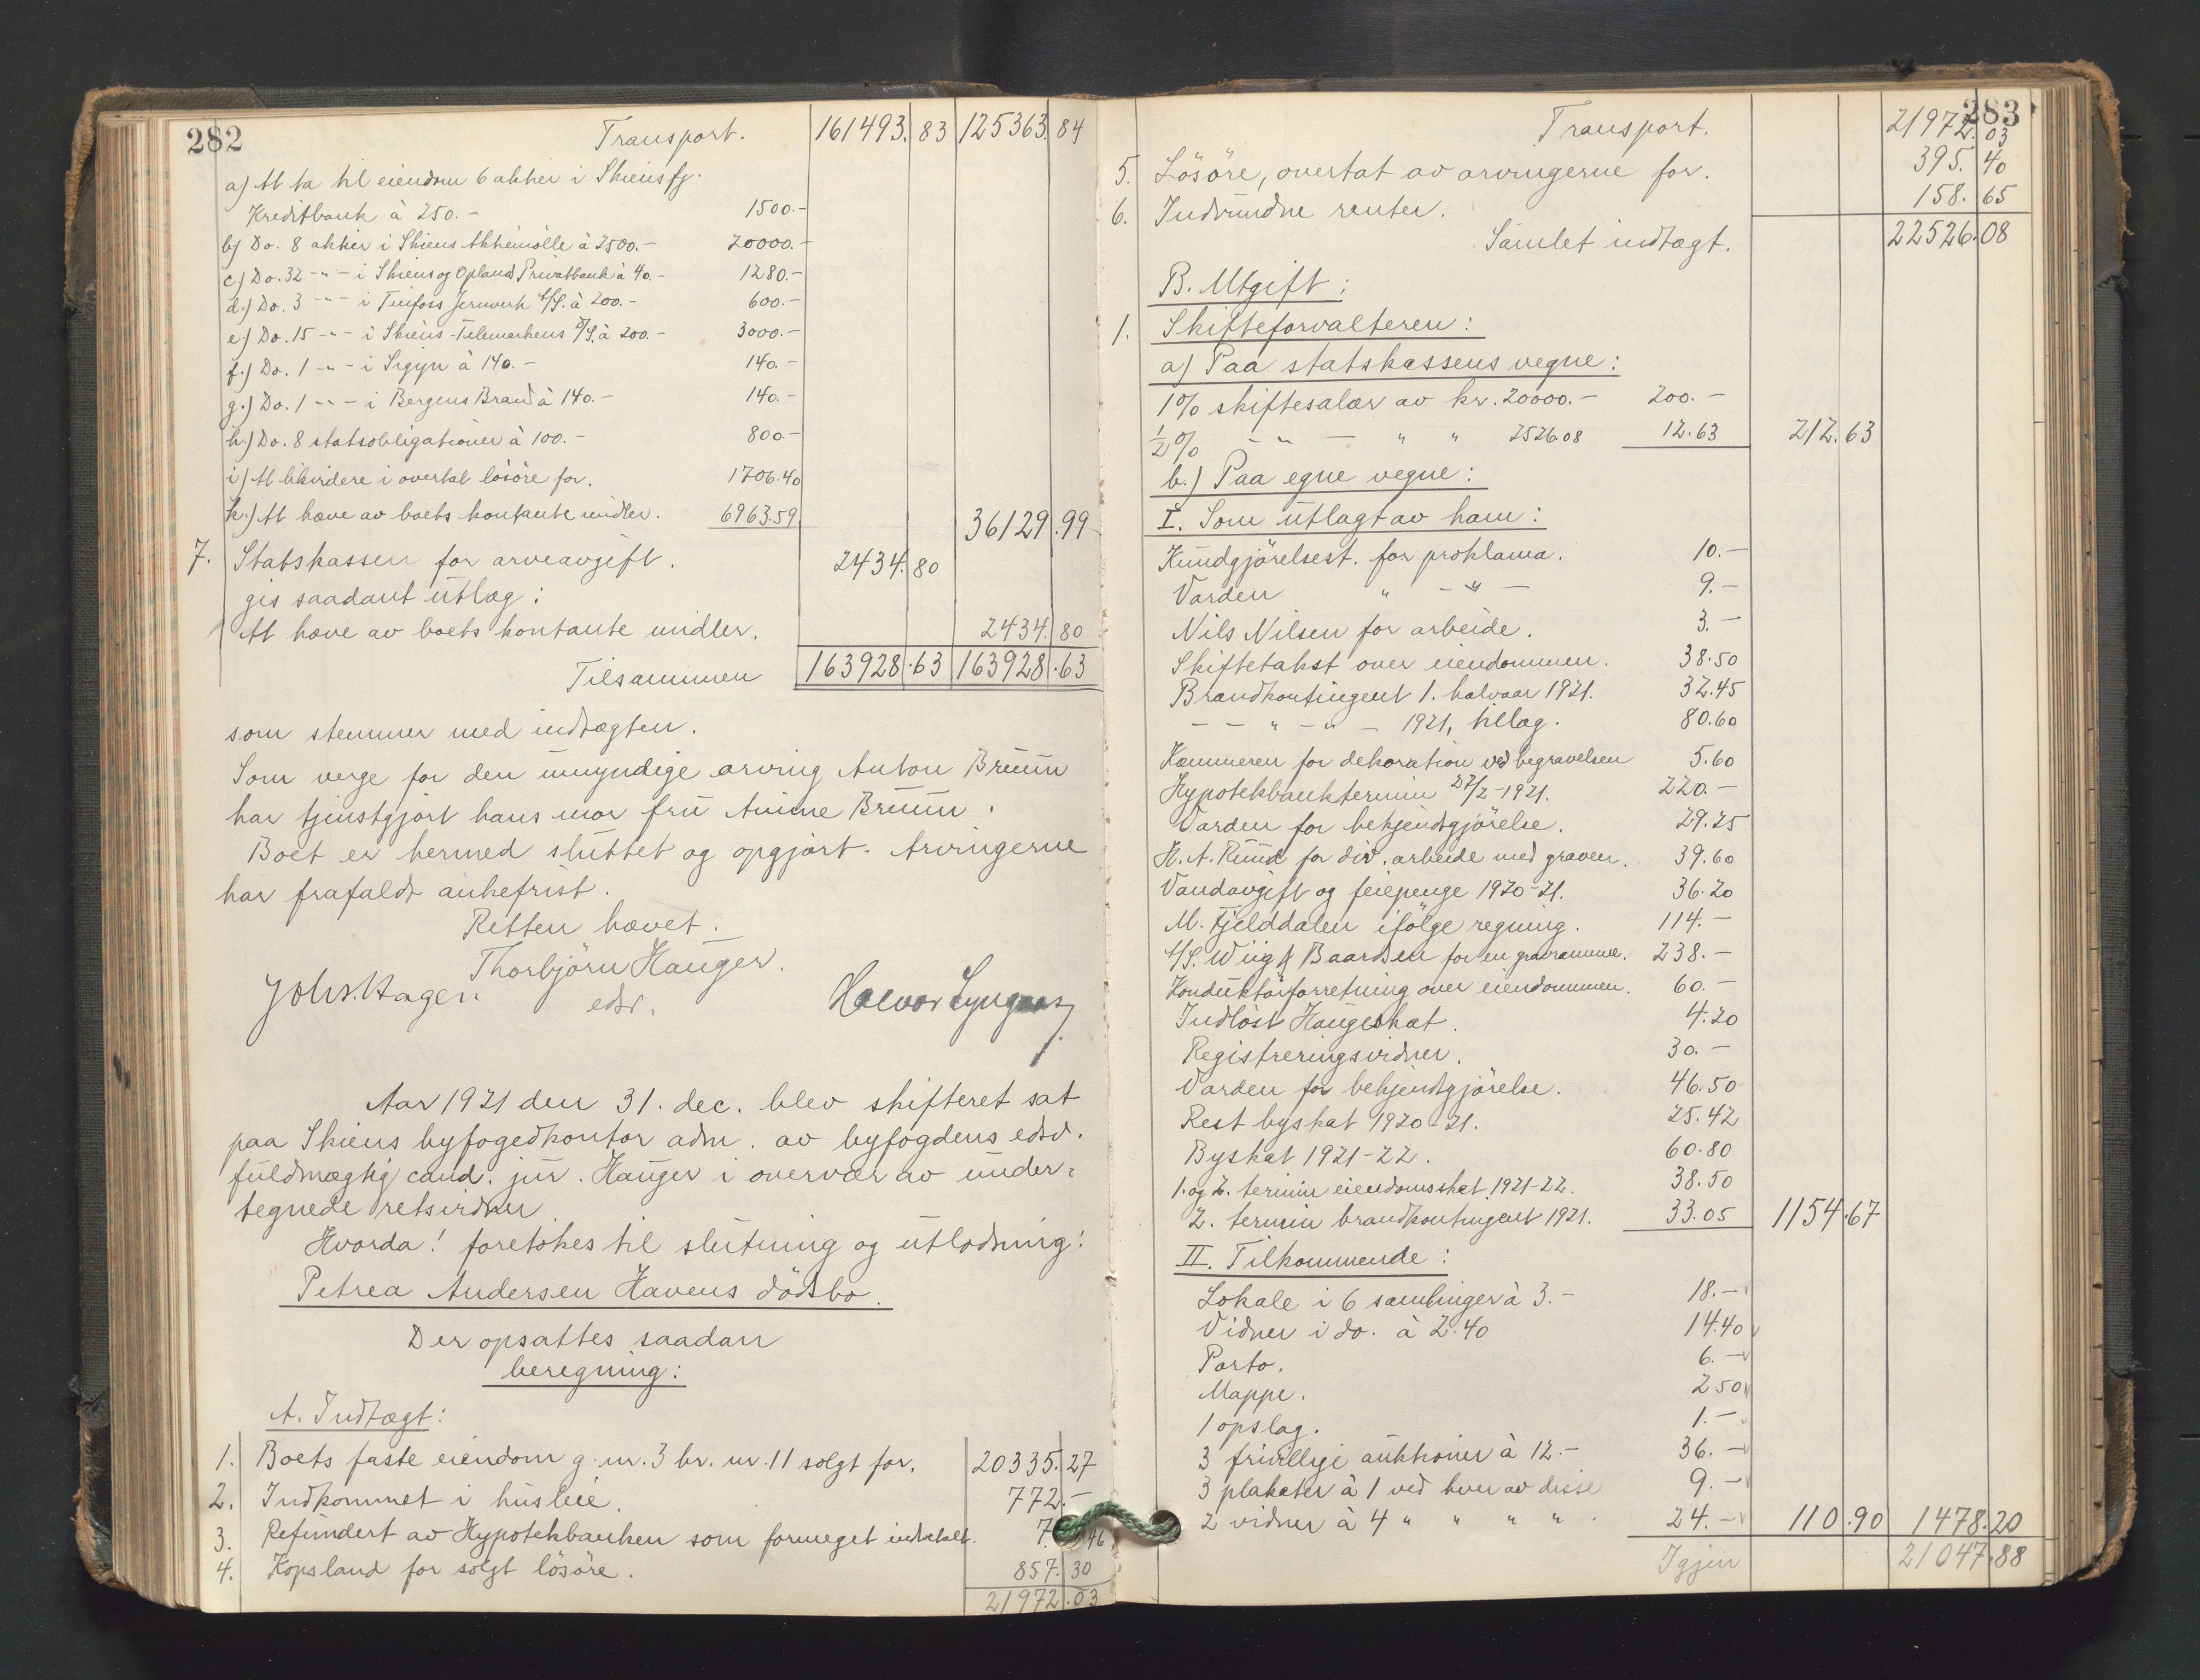 282
Transport. 161493.83 125363.84
a) At ta til eiendom 6 aktier i Skiensfj.
Kreditbank à 250.- 1500.-
b) Do. 8 aktier i Skiens Aktiemølle à 2500.- 20000.-
c) Do. 32 -"- i Skiens og Opland Privatbank à 40.- 1280.-
d.) Do. 3 -"- i Tinfoss Jernverk A/S. à 200.- 600.-
e.) Do. 15 -"- i Skiens-Telemarkens A/S. à 200.- 3000.-
f.) Do. 1 -"- i Sigyn à 140.- 140.-
g.) Do. 1 -"- i Bergens Brand à 140.- 140.-
h.) Do. 8 statsobligationer à 100.- 800.-
i) At likvidere i overtat lösöre for. 1706.40
k.) At hæve av boets kontante midler. 6963.59 36129.99
7. Statskassen for arveavgift. 2434.80
gis saadant utlæg:
At hæve av boets kontante midler. 2434.80
Tilsammen 163928.63 163928.63
som stemmer med indtægten.
Som verge for den umyndige arving Anton Bruun
har tjenstgjort hans mor fru Anine Bruun.
Boet er hermed sluttet og opgjort. Arvingerne
har frafaldt ankefrist.
Retten hævet.
Thorbjörn Hauger.
edsv.
Johs. Hagen
Halvor Lyngaas
Aar 1921 den 31. dec. blev skifteret sat
paa Skiens byfogedkontor adm. av byfogdens edsv.
fuldmægtig cand. jur. Hauger i overvær av under=
tegnede retsvidner
Hvorda! foretokes til slutning og utlodning:
Petrea Andersen Havens dödsbo.
Der opsattes saadan
beregning:
A. Indtægt:
1. Boets faste eiendom g. nr. 3 br. nr. 11 solgt for. 20335.27
2. Indkommet i husleie. 772.-
3. Refundert av Hypotekbanken som formeget indbetalt. 7.46
4. Kopsland for solgt lösöre. 857.30
21972.03
283
Transport. 21972.03
5. Lösöre, overtat av arvingerne for. 395.40
6. Indvundne renter. 158.65
Samlet indtægt. 22526.08
B. Utgift:
1. Skifteforvalteren:
a) Paa statskassens vegne:
1% skiftesalær av kr. 20000.- 200.-
1/2% -"- " " 2526.08 12.63 212.63
b.) Paa egne vegne:
I. Som utlagt av ham:
Kundgjörelsest. for proklama. 10.-
Varden " -"- 9.-
Nils Nilsen for arbeide. 3.-
Skiftetakst over eiendommen. 38.50
Brandkontingent 1. halvaar 1921. 32.45
- - " - " - 1921, tillæg. 80.60
Kæmneren for dekoration ved begravelsen 5.60
Hypotekbanktermin 27/2-1921. 220.-
Varden for bekjendtgjörelse. 29.25
H. A. Ruud for div. arbeide med graven. 39.60
Vandavgift og feiepenge 1920-21. 36.20
M. Fjelddalen ifölge regning. 114.-
A/S. Wiig & Baardsen for en gravramme. 238.-
Konduktörforretning over eiendommen. 60.-
Indlöst Haugeskat. 4.20
Registreringsvidner. 30.-
Varden for bekjendtgjörelse. 46.50
Rest byskat 1920-21. 25.42
Byskat 1921-22. 60.80
1. og 2. termin eiendomsskat 1921-22. 38.50
2. termin brandkontingent 1921. 33.05 1154.67
II. Tilkommende:
Lokale i 6 samlinger à 3.- 18.-
Vidner i do. à 2.40 14.40
Porto. 6.-
Mappe. 2.50
1 opslag. 1.-
3 frivillige auktioner à 12.- 36.-
3 plakater à 1 ved hver av disse 9.-
2 vidner à 4 " " " " . 24.- 110.90 1478.20
Igjen 21047.88